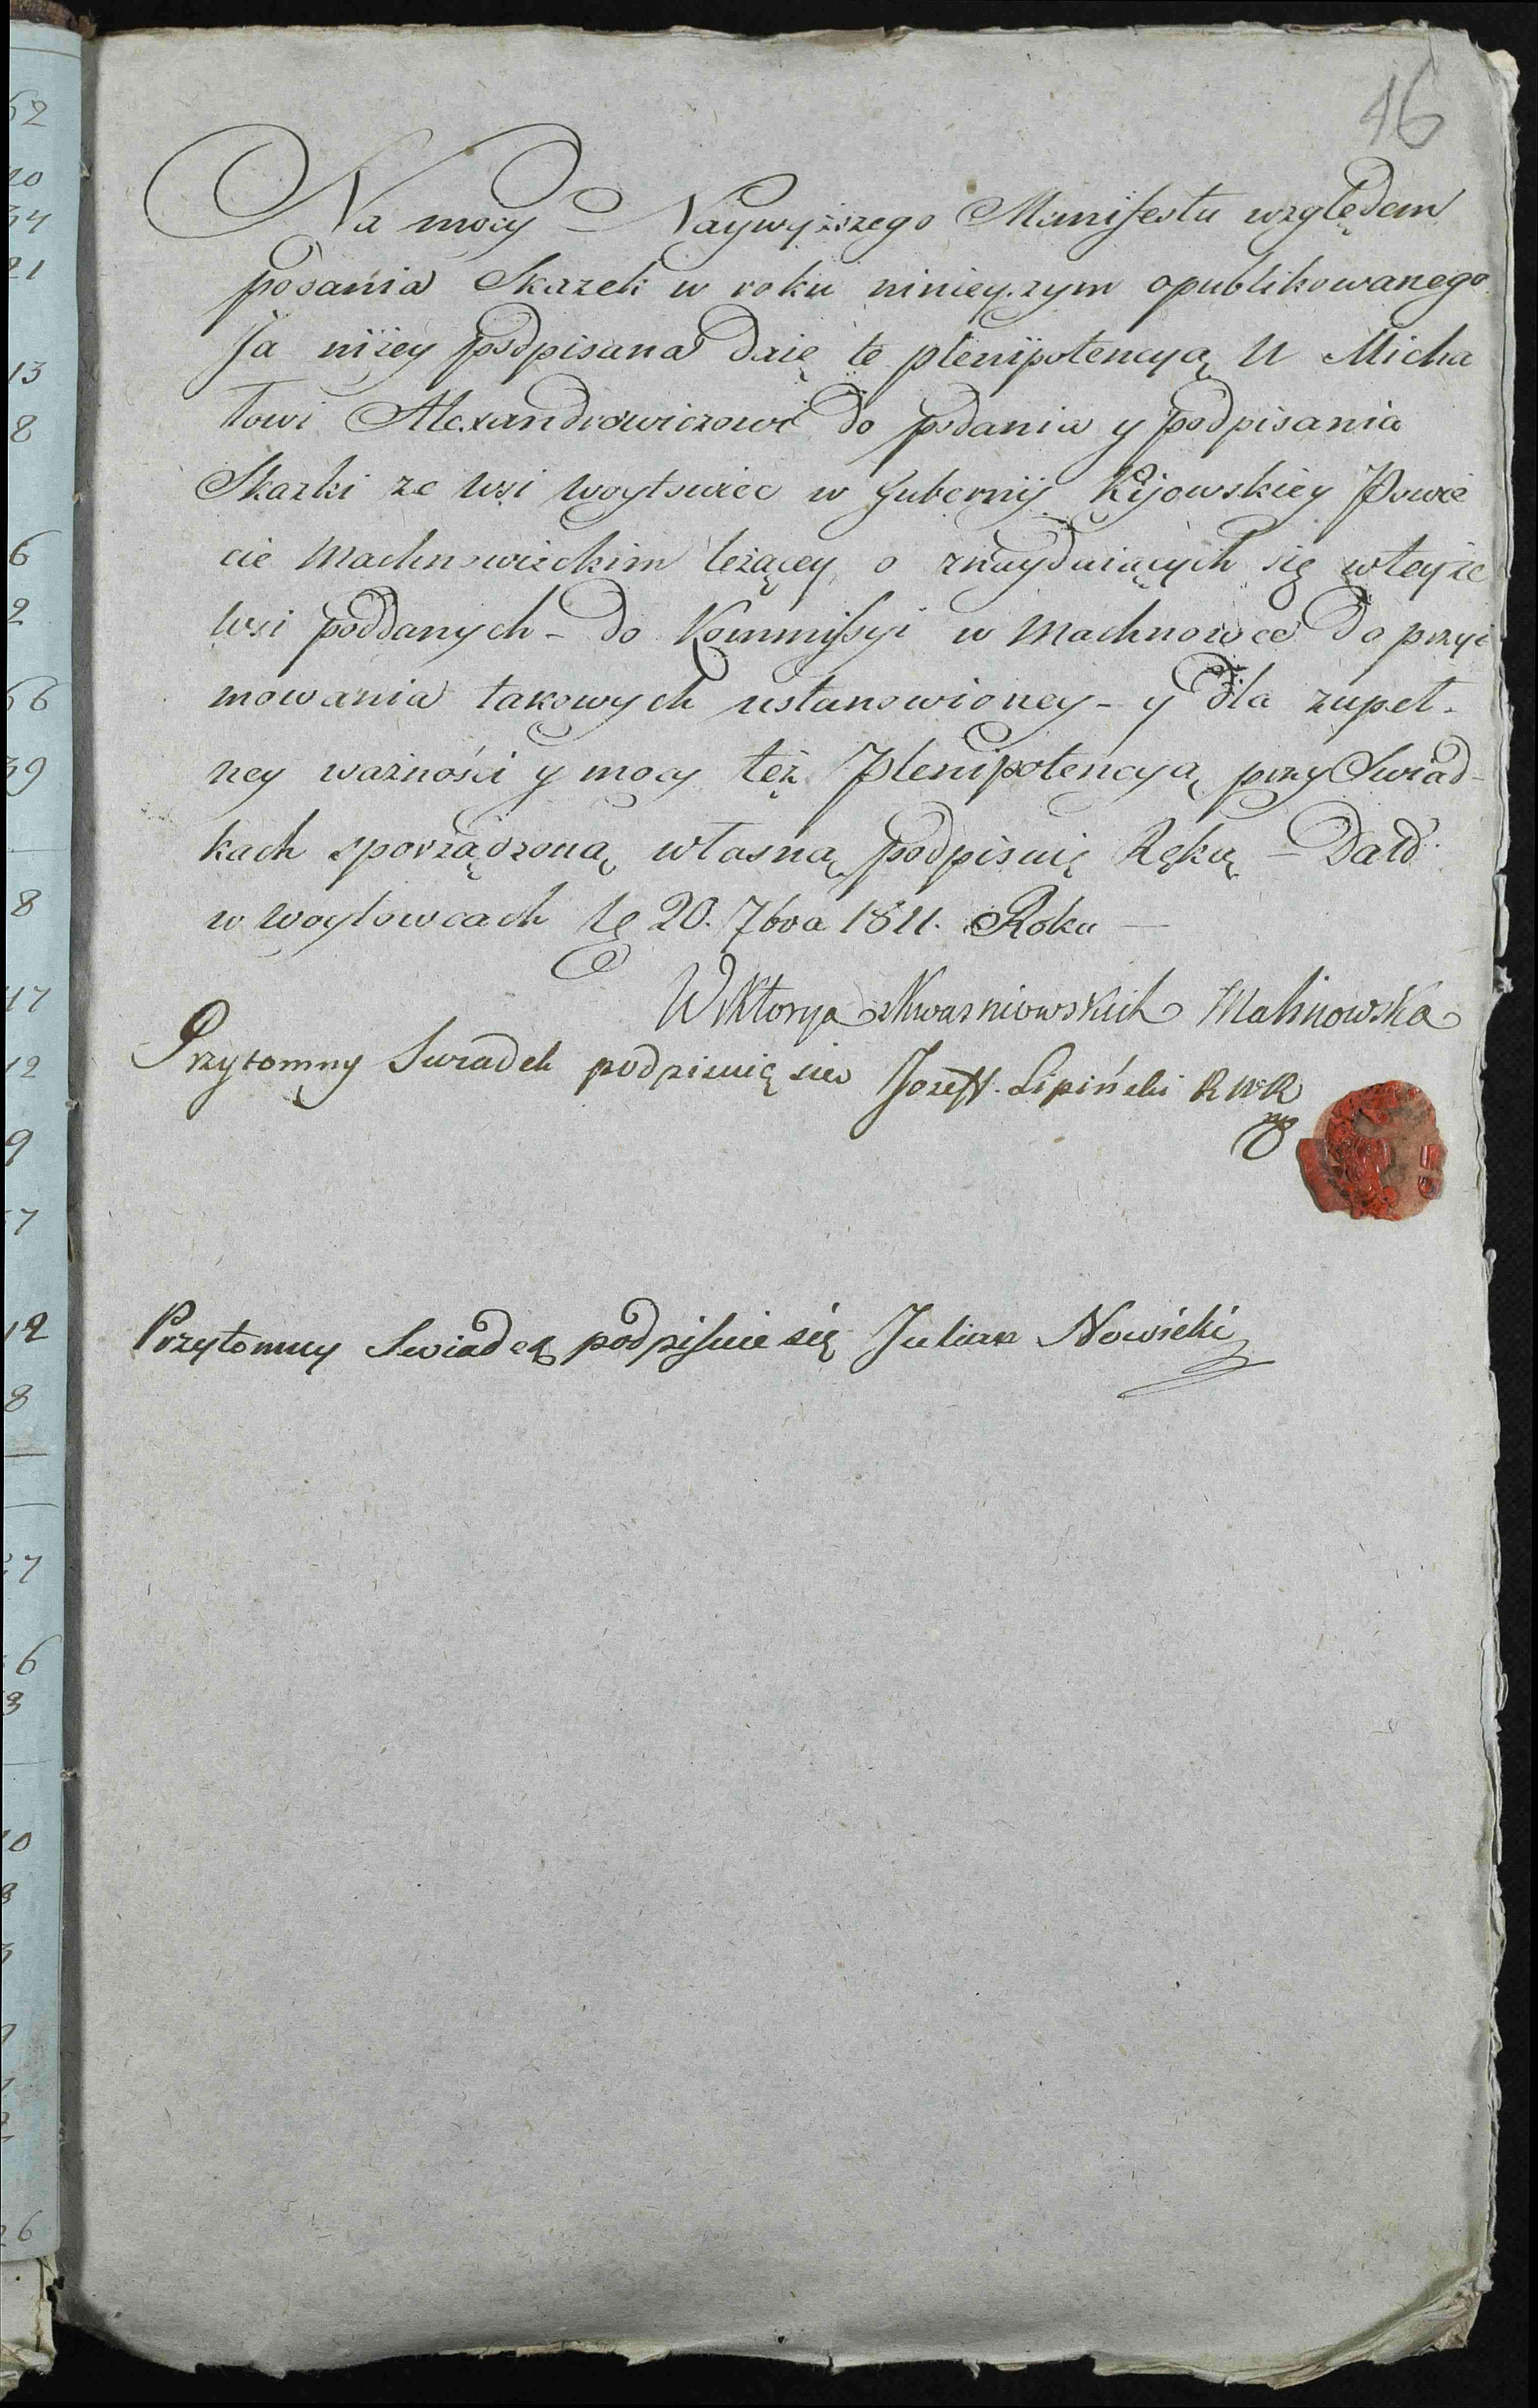 16
Na mocy Naywyższego Manifestu względem
podania Skazek w roku ninieyszym opublikowanego
Ja niżey podpisana daię te plenipotencyą U Micha
łowi Alexandrowiczowi do podania y podpisania
Skazki ze wsi Woytowiec w Gubernij Kijowskiey Powie
cie Machnowieckim leżącey o znayduiących się wteyże
wsi poddanych - do Kommissyi w Machnowce do przyi
mowania takowych ustanowioney - y dla zupeł-
ney ważności y mocy też Plenipotencyą przy Swiad-
kach sporządzoną własną podpisuię Ręką - Datd
w Woytowcach d 20. 7bra 1811. Roku —
Wiktorya z Kwasniowskich Malinowska
Przytomny Swiadek podpisuię sie Jozeff Lipiński RWR
mp
Przytomny Swiadek podpisuie się Julian Nowicki
52
20
34
21
13
8
6
2
66
39
8
17
12
9
7
12
8
27
6
3
10
8
26